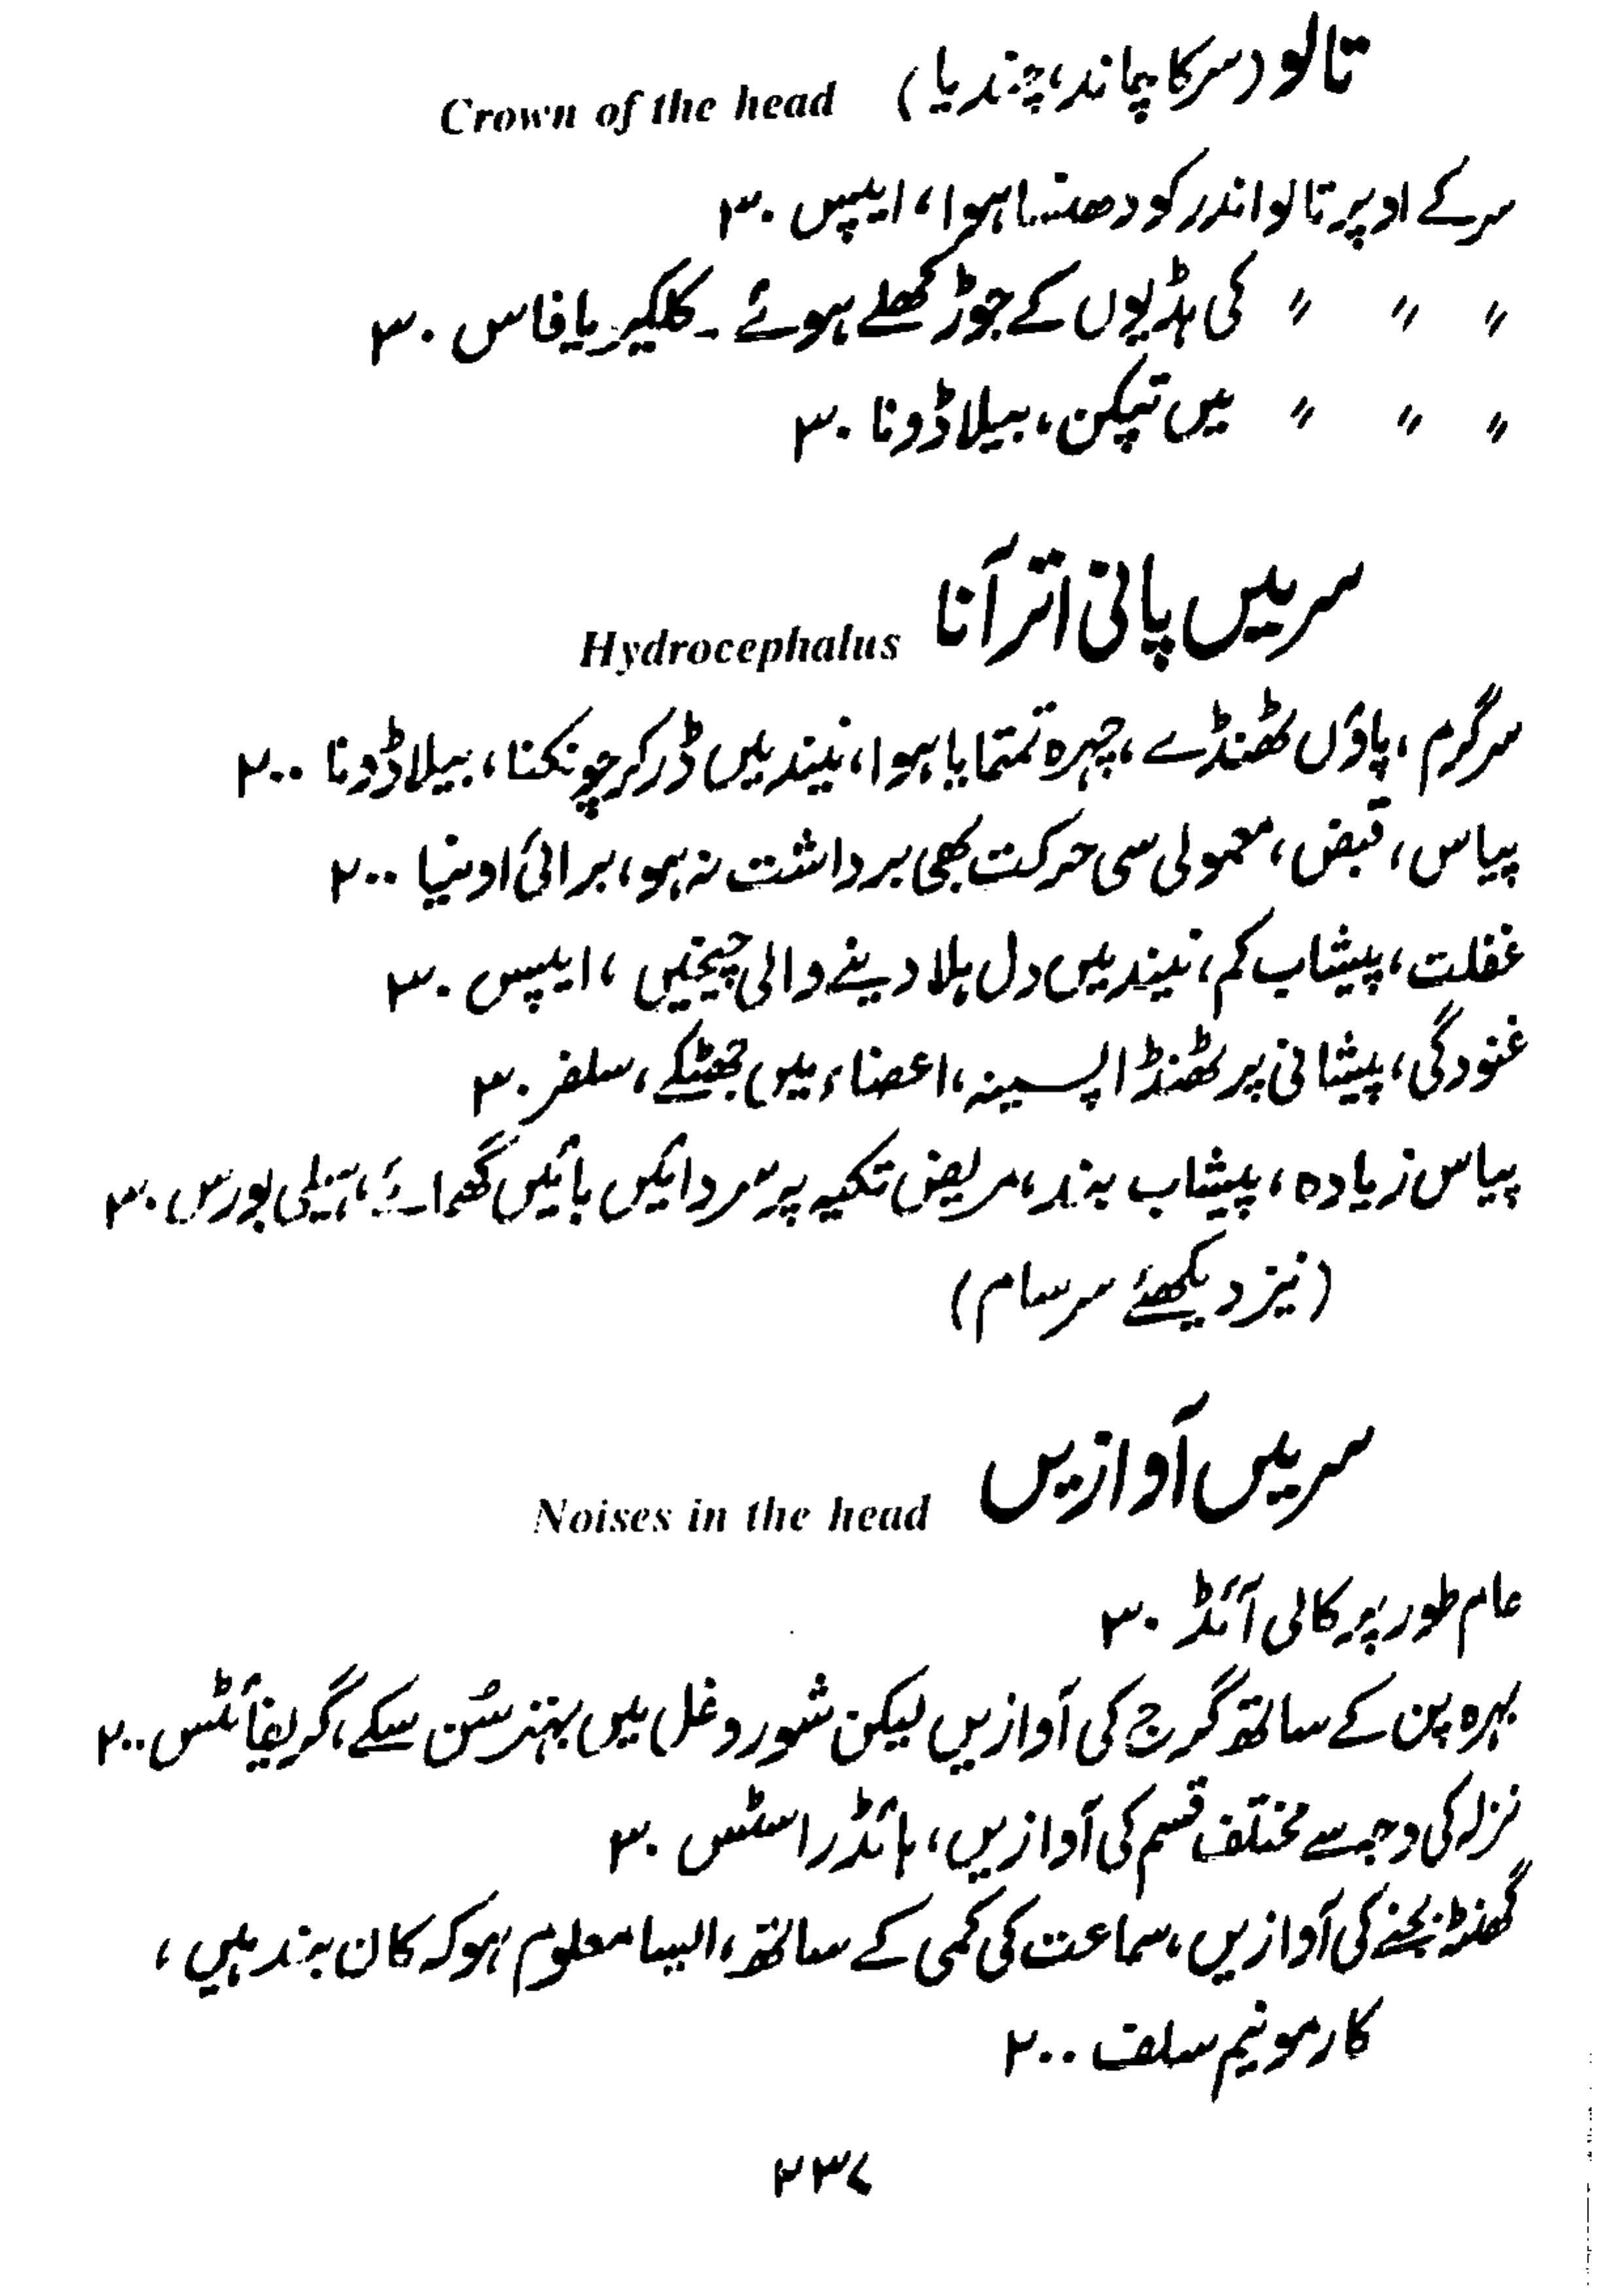 تالو (سر کا چاند، چندیا) Crown of the head
سر کے اوپر تالو اندر کو دھنسا ہوا، ایپس ۳۰
〃 〃 〃 کی ہڈیوں کے جوڑ کھلے ہوئے ۔ کلکیریا فاس ۳۰
〃 〃 〃 میں تپکن، بیلاڈونا ۳۰
سر میں پانی اتر آنا Hydrocephalus
سر گرم، پاؤں ٹھنڈے، چہرہ تمتمایا ہوا، نیند میں ڈر کر چونکنا، بیلاڈونا ۲۰۰
پیاس، قبض، معمولی سی حرکت بھی برداشت نہ ہو، برائی اونیا ۲۰۰
غفلت، پیشاب کم، نیند میں دل ہلا دینے والی چیخیں، ایپس ۳۰
غنودگی، پیشانی پر ٹھنڈا پسینہ، اعضاء میں جھٹکے، سلفر ۳۰
پیاس زیادہ، پیشاب بند، مریض تکیہ پر سر دائیں بائیں گھمائے، ہیلی بورس ۳۰
(نیز دیکھئے سرسام)
سر میں آوازیں Noises in the head
عام طور پر کالی آئڈ ۳۰
بہرہ پن کے ساتھ گرج کی آوازیں لیکن شور و غل میں بہتر سُن سکے، گریفائٹس ۲۰۰
نزلہ کی وجہ سے مختلف قسم کی آوازیں، ہائڈراسٹس ۳۰
گھنٹہ بجنے کی آوازیں، سماعت کی کمی کے ساتھ، ایسا معلوم ہو کہ کان بند ہیں،
کارمونیم سلف ۲۰۰
۲۳۷